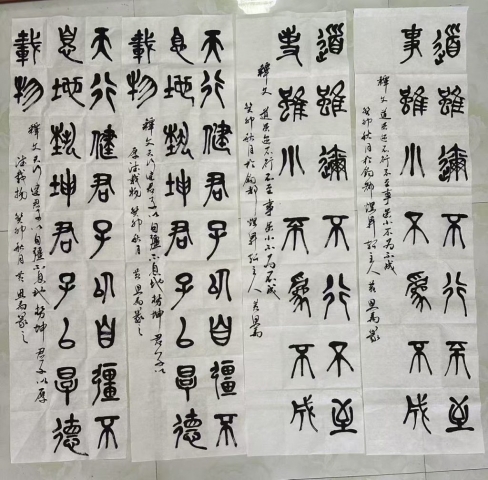 道雖邇不行不至
事雖小不為不成
釋文 道虽迩不行不至事虽小不为不成
癸卯秋月於鈞都 主人
道雖邇不行不至
事雖小不為不成
釋文 道虽迩不行不至事虽小不为不成
癸卯秋月於鈞都 主人
天行健君子以自彊不
息地埶坤君子以厚德
載物
釋文 天行健君子以自彊不息地势坤 君子以
厚德载物 癸卯秋月
天行健君子以自彊不
息地埶坤君子以厚德
載物
釋文 天行健君子以自彊不息地势坤 君子以厚
德载物 癸卯秋月